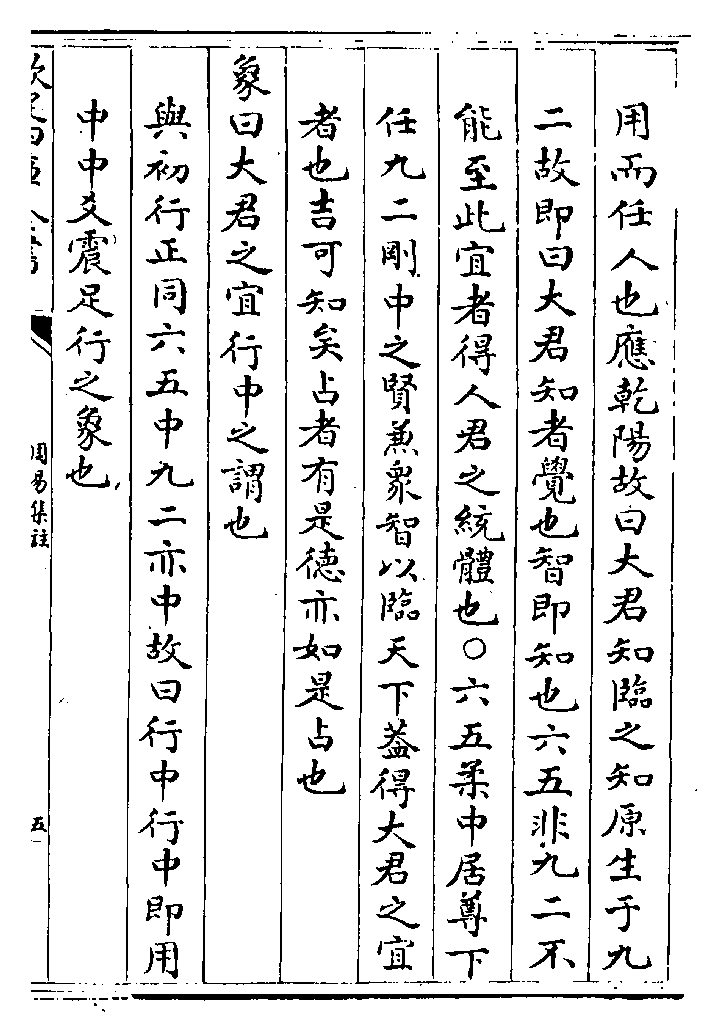 用而任人也應乾陽故曰大君知臨之知原生于九
二故即曰大君知者覺也智即知也六五非九二不
能至此宜者得人君之統體也○六五柔中居尊下
任九二剛中之賢兼衆智以臨天下葢得大君之宜
者也吉可知矣占者有是德亦如是占也
象曰大君之宜行中之謂也
與初行正同六五中九二亦中故曰行中行中即用
中中爻震足行之象也
欽定四庫全書
周易集註
五